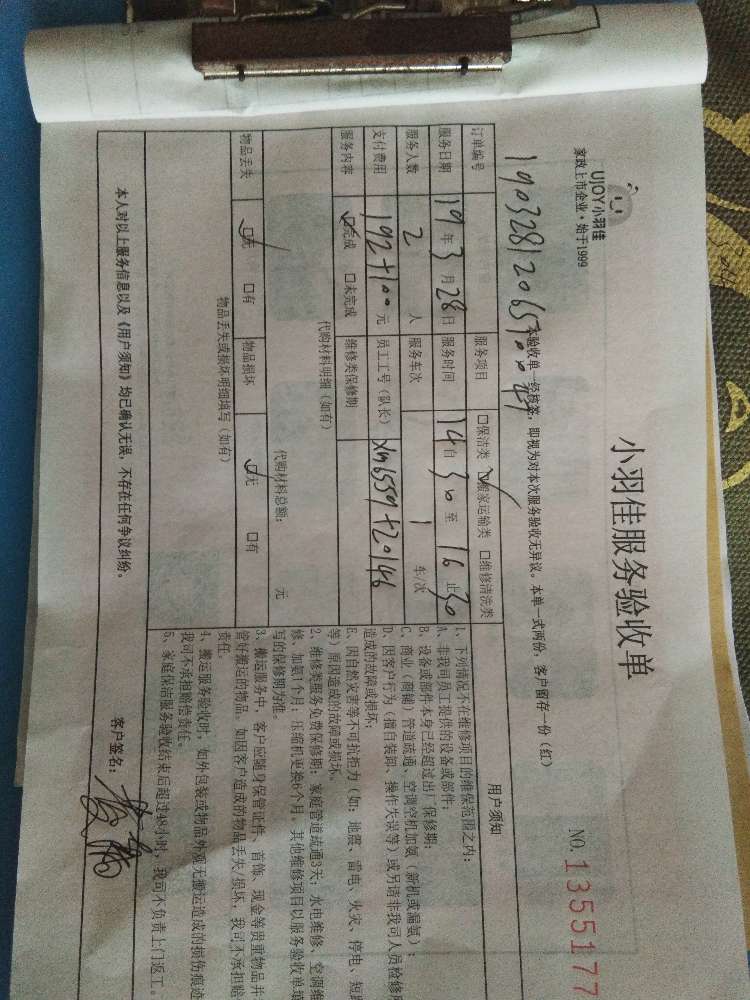 UJOY小羽佳
家政上市企业·始于1999
小羽佳服务验收单
NO. 1355177
本验收单一经核签，即视为对本次服务验收无异议。本单一式两份，客户留存一份（红）
订单编号
服务项目 □保洁类 □搬家运输类 □维修清洗类
服务日期 19年3月28日 服务时间 14自30至16止30
服务人数 2 人 服务车次 1 车/次
支付费用 192+100 元 员工工号（队长） xm6559+20146
服务内容 □完成 □未完成 维修类保修期
代购材料明细（如有）
代购材料总额： 元
物品丢失 □无 □有 物品损坏 □无 □有
物品丢失或损坏明细填写（如有）
本人对以上服务信息以及《用户须知》均已确认无误，不存在任何争议纠纷。
用户须知
1、下列情况不在维修项目的维保范围之内：
A、非我司员工提供的设备或部件；
B、设备或部件本身已经超过出厂保修期；
C、商业（商铺）管道疏通、空调空机加氨（新机或漏氨）；
D、因客户行为（擅自装卸、操作失误等）或另请非我司人员检修
造成的故障或损坏；
E、因自然灾害等不可抗拒力（如：地震、雷电、火灾、停电、短路
等）原因造成的故障或损坏。
2、维修类服务免费保修期：家庭管道疏通3天；水电维修、空调维
修、加氨1个月；压缩机更换6个月，其他维修项目以服务验收单填
写的保修期为准。
3、搬运服务中，客户应随身保管证件、首饰、现金等贵重物品并
管好搬运的物品。如因客户造成的物品丢失/损坏，我司不承担赔
责任。
4、搬运服务验收时，如外包装或物品外观无搬运造成的损伤痕迹
我司不承担赔偿责任。
5、家庭保洁服务验收结束后超过48小时，我司不负责上门返工。
客户签名：